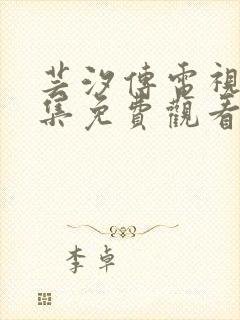 芸汐傳電視
集免費觀看
李卓